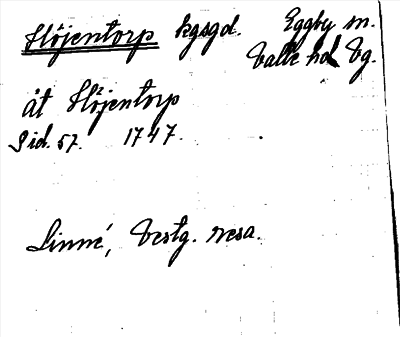 Höjentorp kgsgd. Eggby sn.
Valle hd Vg.
åt Höjentorp
Sid. 57. 1747.
Linné, Vestg. resa.